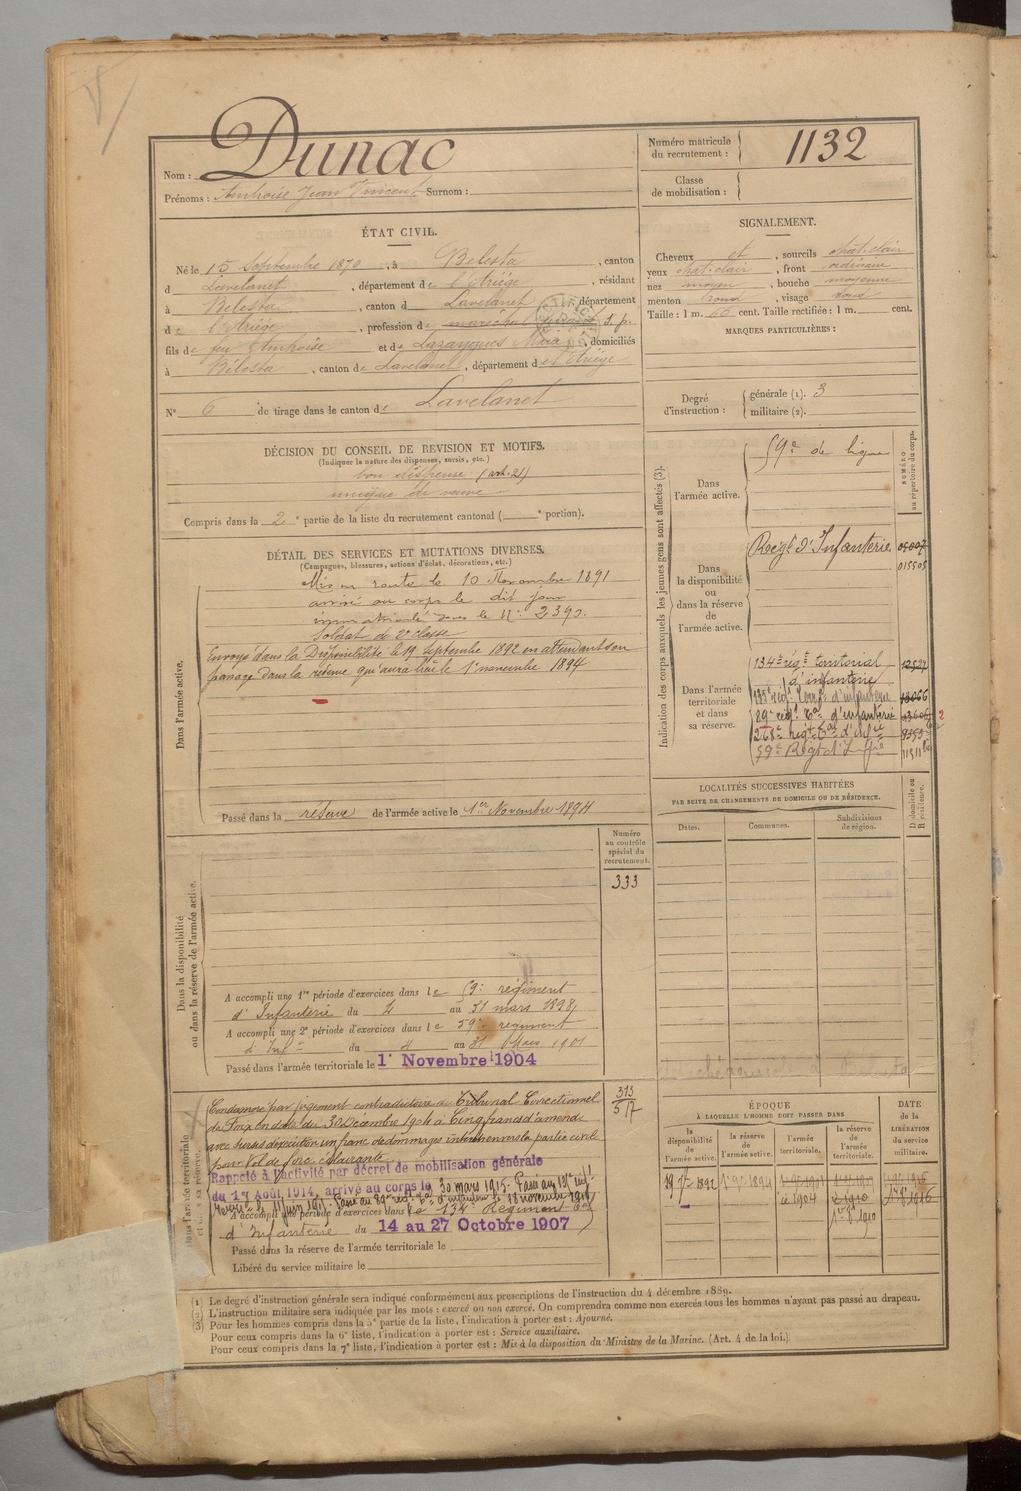 Nom : Dunac
Prénoms : Ambroise Jean Vincent Surnom :
Numéro matricule du recrutement : 1132
Classe de mobilisation :
ÉTAT CIVIL.
Né le 15 Septembre 1870, à Belesta, canton
d Lavelanet, département de l'Ariège, résidant
à Belesta, canton d Lavelanet, département
de l'Ariège, profession de maréchal ferrant s. p.
fils de feu Ambroise et de Lazarques, domiciliés
à Bélesta, canton de Lavelanet, département d et Ariège
N° 6 de tirage dans le canton de Lavelanet
SIGNALEMENT.
Cheveux et, sourcils chat. clair
yeux chat. clair, front ordinaire
nez moyen, bouche moyenne
menton rond, visage rond
Taille : 1 m. 66 cent. Taille rectifiée : 1 m. cent.
MARQUES PARTICULIÈRES :
Degré d'instruction : générale (1). 3
militaire (2).
DÉCISION DU CONSEIL DE REVISION ET MOTIFS.
(Indiquer la nature des dispenses, sursis, etc.)
bon dispensé (art. 21)
unique de veuve
Compris dans la 2e partie de la liste du recrutement cantonal ( e portion).
DÉTAIL DES SERVICES ET MUTATIONS DIVERSES.
(Campagnes, blessures, actions d'éclat, décorations, etc.)
Dans l'armée active.
Mis en route le 10 Novembre 1891
arrivé au corps le dit jour
immatriculé sous le N° 2390.
Soldat de 2e classe
Envoyé dans la Disponibilité le 19 septembre 1892 en attendant son
passage dans la réserve qui aura lieu le 1er novembre 1894
Passé dans la réserve de l'armée active le 1er Novembre 1894
Indication des corps auxquels les jeunes gens sont affectés (3).
NUMÉRO au répertoire du corps.
Dans l'armée active.
59e de ligne
Dans la disponibilité ou dans la réserve de l'armée active.
Régt d'Infanterie.
05007
015505
Dans l'armée territoriale et dans sa réserve.
134e régt territorial
d'infanterie
135e régt Terral d'infanterie 13066
89e régt Tal d'infanterie
268e régt Tal d'infie
59e Régt d'Infie
LOCALITÉS SUCCESSIVES HABITÉES
PAR SUITE DE CHANGEMENTS DE DOMICILE OU DE RÉSIDENCE.
Dates.
Communes.
Subdivisions de région.
D domicile ou R résidence.
Dans la disponibilité ou dans la réserve de l'armée active.
Numéro au contrôle spécial du recrutement.
333
A accompli une 1re période d'exercices dans le 59e régiment
d'Infanterie du 4 au 31 mars 1898
A accompli une 2e période d'exercices dans le 59e régiment
d'Infie du 4 au 31 Mars 1901
Passé dans l'armée territoriale le 1er Novembre 1904
Dans l'armée territoriale et dans sa réserve.
313
517
Condamné par jugement contradictoire du Tribunal Correctionnel
de Foix en date du 30 Décembre 1904 à Cinq francs d'amende
avec sursis d'exécution un franc de dommages intérêts envers la partie civile
pour Vol de force éclairante.
Rappelé à l'activité par décret de mobilisation générale
du 1er Août 1914, arrivé au corps le 30 mars 1915. Passé au 135e régt
terral le 11 juin 1915. Passé au 89e régt tal d'infanterie le 18 novembre 1915
A accompli une période d'exercices dans le 134e Régiment tal
d'Infanterie du 14 au 27 Octobre 1907
Passé dans la réserve de l'armée territoriale le
Libéré du service militaire le
ÉPOQUE
À LAQUELLE L'HOMME DOIT PASSER DANS
la disponibilité de l'armée active.
la réserve de l'armée active.
l'armée territoriale.
la réserve de l'armée territoriale.
DATE de la LIBÉRATION du service militaire.
1892
1894
1904
1910
1916
(1) Le degré d'instruction générale sera indiqué conformément aux prescriptions de l'instruction du 4 décembre 1889.
(2) L'instruction militaire sera indiquée par les mots : exercé ou non exercé. On comprendra comme non exercés tous les hommes n'ayant pas passé au drapeau.
(3) Pour les hommes compris dans la 5e partie de la liste, l'indication à porter est : Ajourné.
Pour ceux compris dans la 6e liste, l'indication à porter est : Service auxiliaire.
Pour ceux compris dans la 7e liste, l'indication à porter est : Mis à la disposition du Ministre de la Marine. (Art. 4 de la loi.)